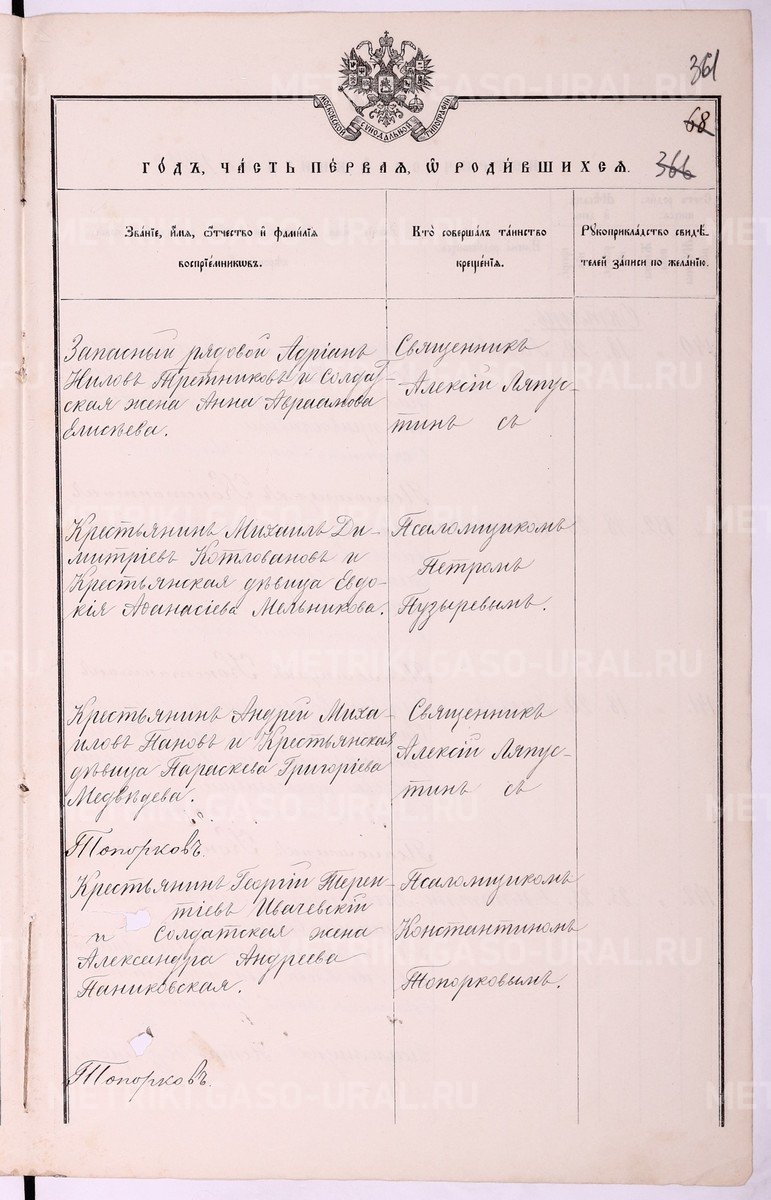 361
68
366
МОСКОВСКОЙ СѴНОДАЛЬНОЙ ТИПОГРАФІИ
ГО́ДЪ, ЧА́СТЬ ПЕ́РВАЯ, Ѡ҆ РОДИ́ВШИХСЯ.
Зва́нїе, и҆́мя, ѻ҆́тчество и҆ фами́лїя
воспрїе́мникѡвъ.
Кто̀ соверша́лъ та́инство
креще́нїя.
Рꙋкоприкла́дство свидѣ́-
телей за́писи по жела́нїю.
Запасный рядовой Адріанъ
Ниловъ Третниковъ и Солдат-
ская жена Анна Авраамова
Елисѣева.
Священникъ
Алексій Ляпус-
тинъ съ
Крестьянинъ Михаилъ Ди-
митріевъ Котловановъ и
Крестьянская дѣвица Евдо-
кія Аѳанасіева Мельникова.
Псаломщикомъ
Петромъ
Пузыревымъ.
Крестьянинъ Андрей Миха-
иловъ Пановъ и Крестьянская
дѣвица Параскева Григоріева
Медвѣдева.
Священникъ
Алексій Ляпус-
тинъ съ
Топорковъ.
Крестьянинъ Георгій Терен-
тіевъ Ивачевскій
и Солдатская жена
Александра Андреева
Паниковская.
Псаломщикомъ
Константиномъ
Топорковымъ.
Топорковъ.
METRIKI.GASO-URAL.RU